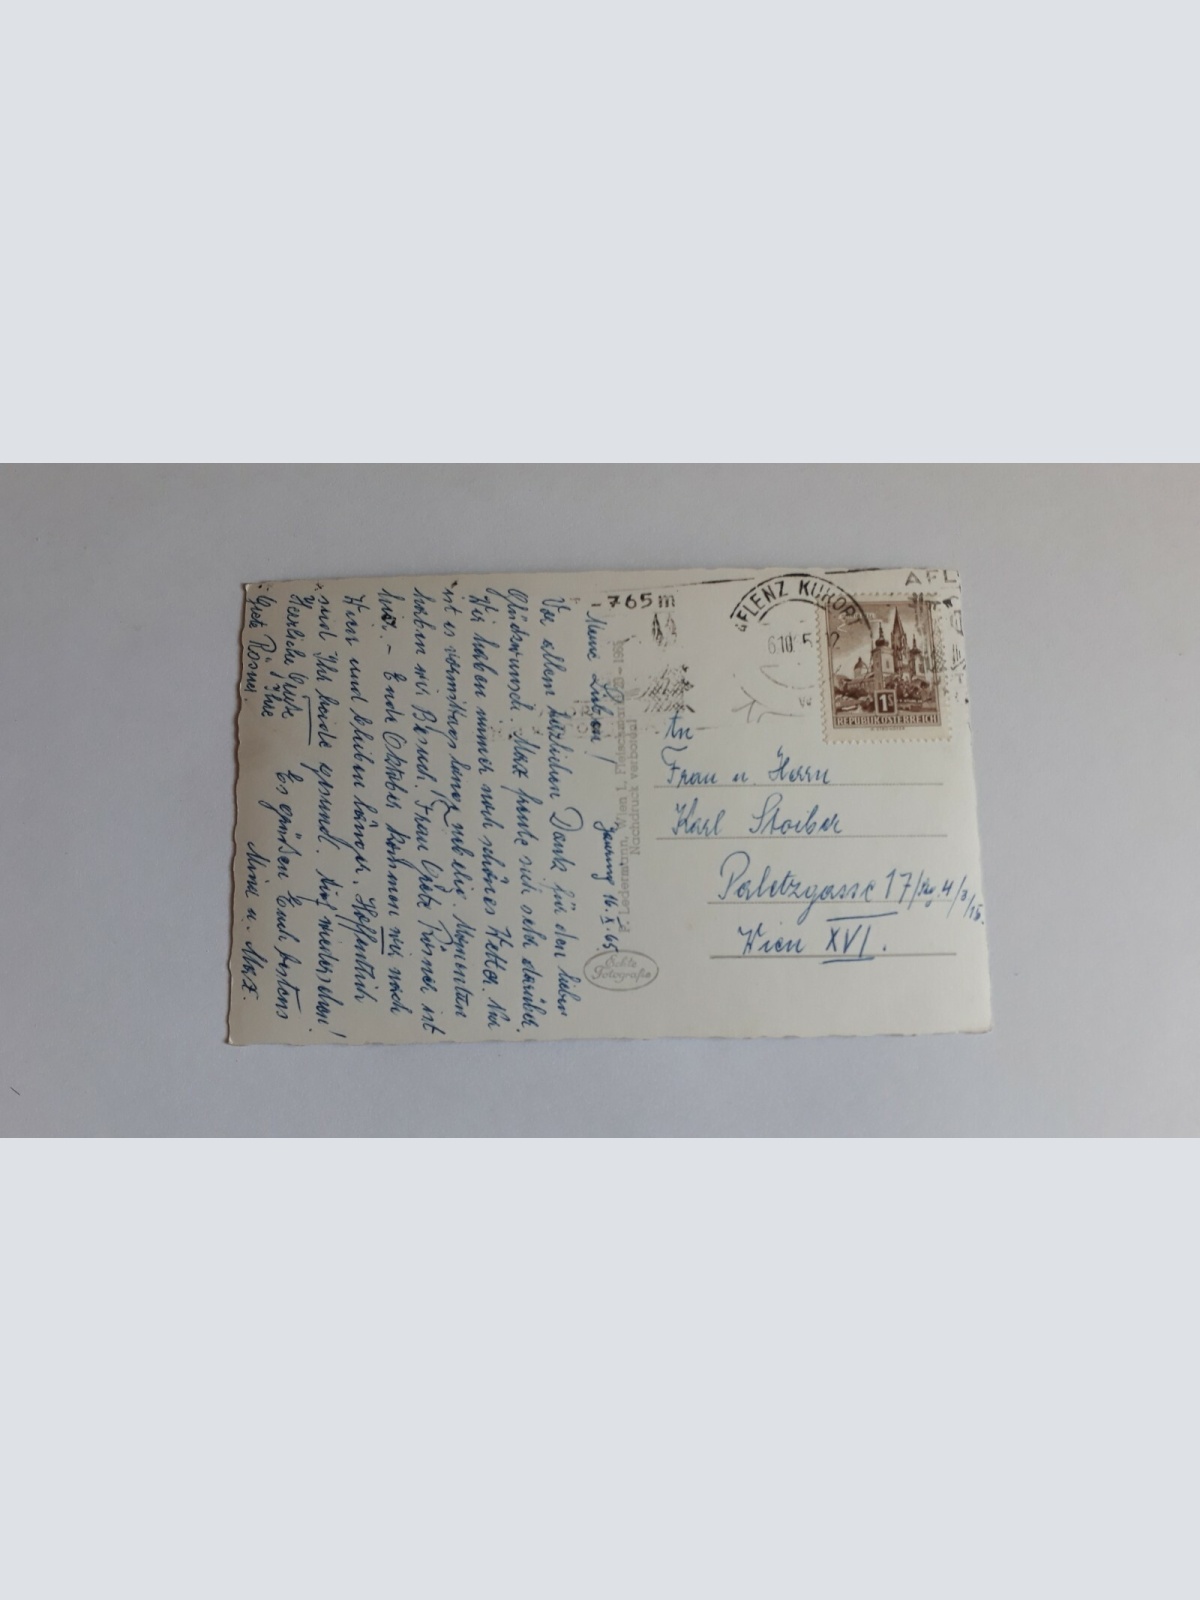 Jauring 16.X.65
Meine Lieben!
Vor allem herzlichen Dank für den lieben
Glückwunsch. Max freute sich sehr darüber.
Wir haben immer noch schönes Wetter. Nur
ist es vormittags lange nebelig. Momentan
haben wir Besuch. Frau Grete Rösner ist
hier. - Ende Oktober kommen wir nach
Wien und bleiben länger. Hoffentlich
seid Ihr beide gesund. Auf Wiedersehen!
Herzliche Grüße
Ihre
Grete Rösner.
Es grüßen Euch bestens
Mina u. Max.
F. Ledermann, Wien I, Fleischmarkt 20 - 1965
Nachdruck verboten!
Echte
Fotografie
765 m
AFLENZ KURORT
AFL
REPUBLIK ÖSTERREICH
1S
An
Frau u. Herrn
Karl Stoiber
Paletzgasse 17/Stg. 4/3/15.
Wien XVI.